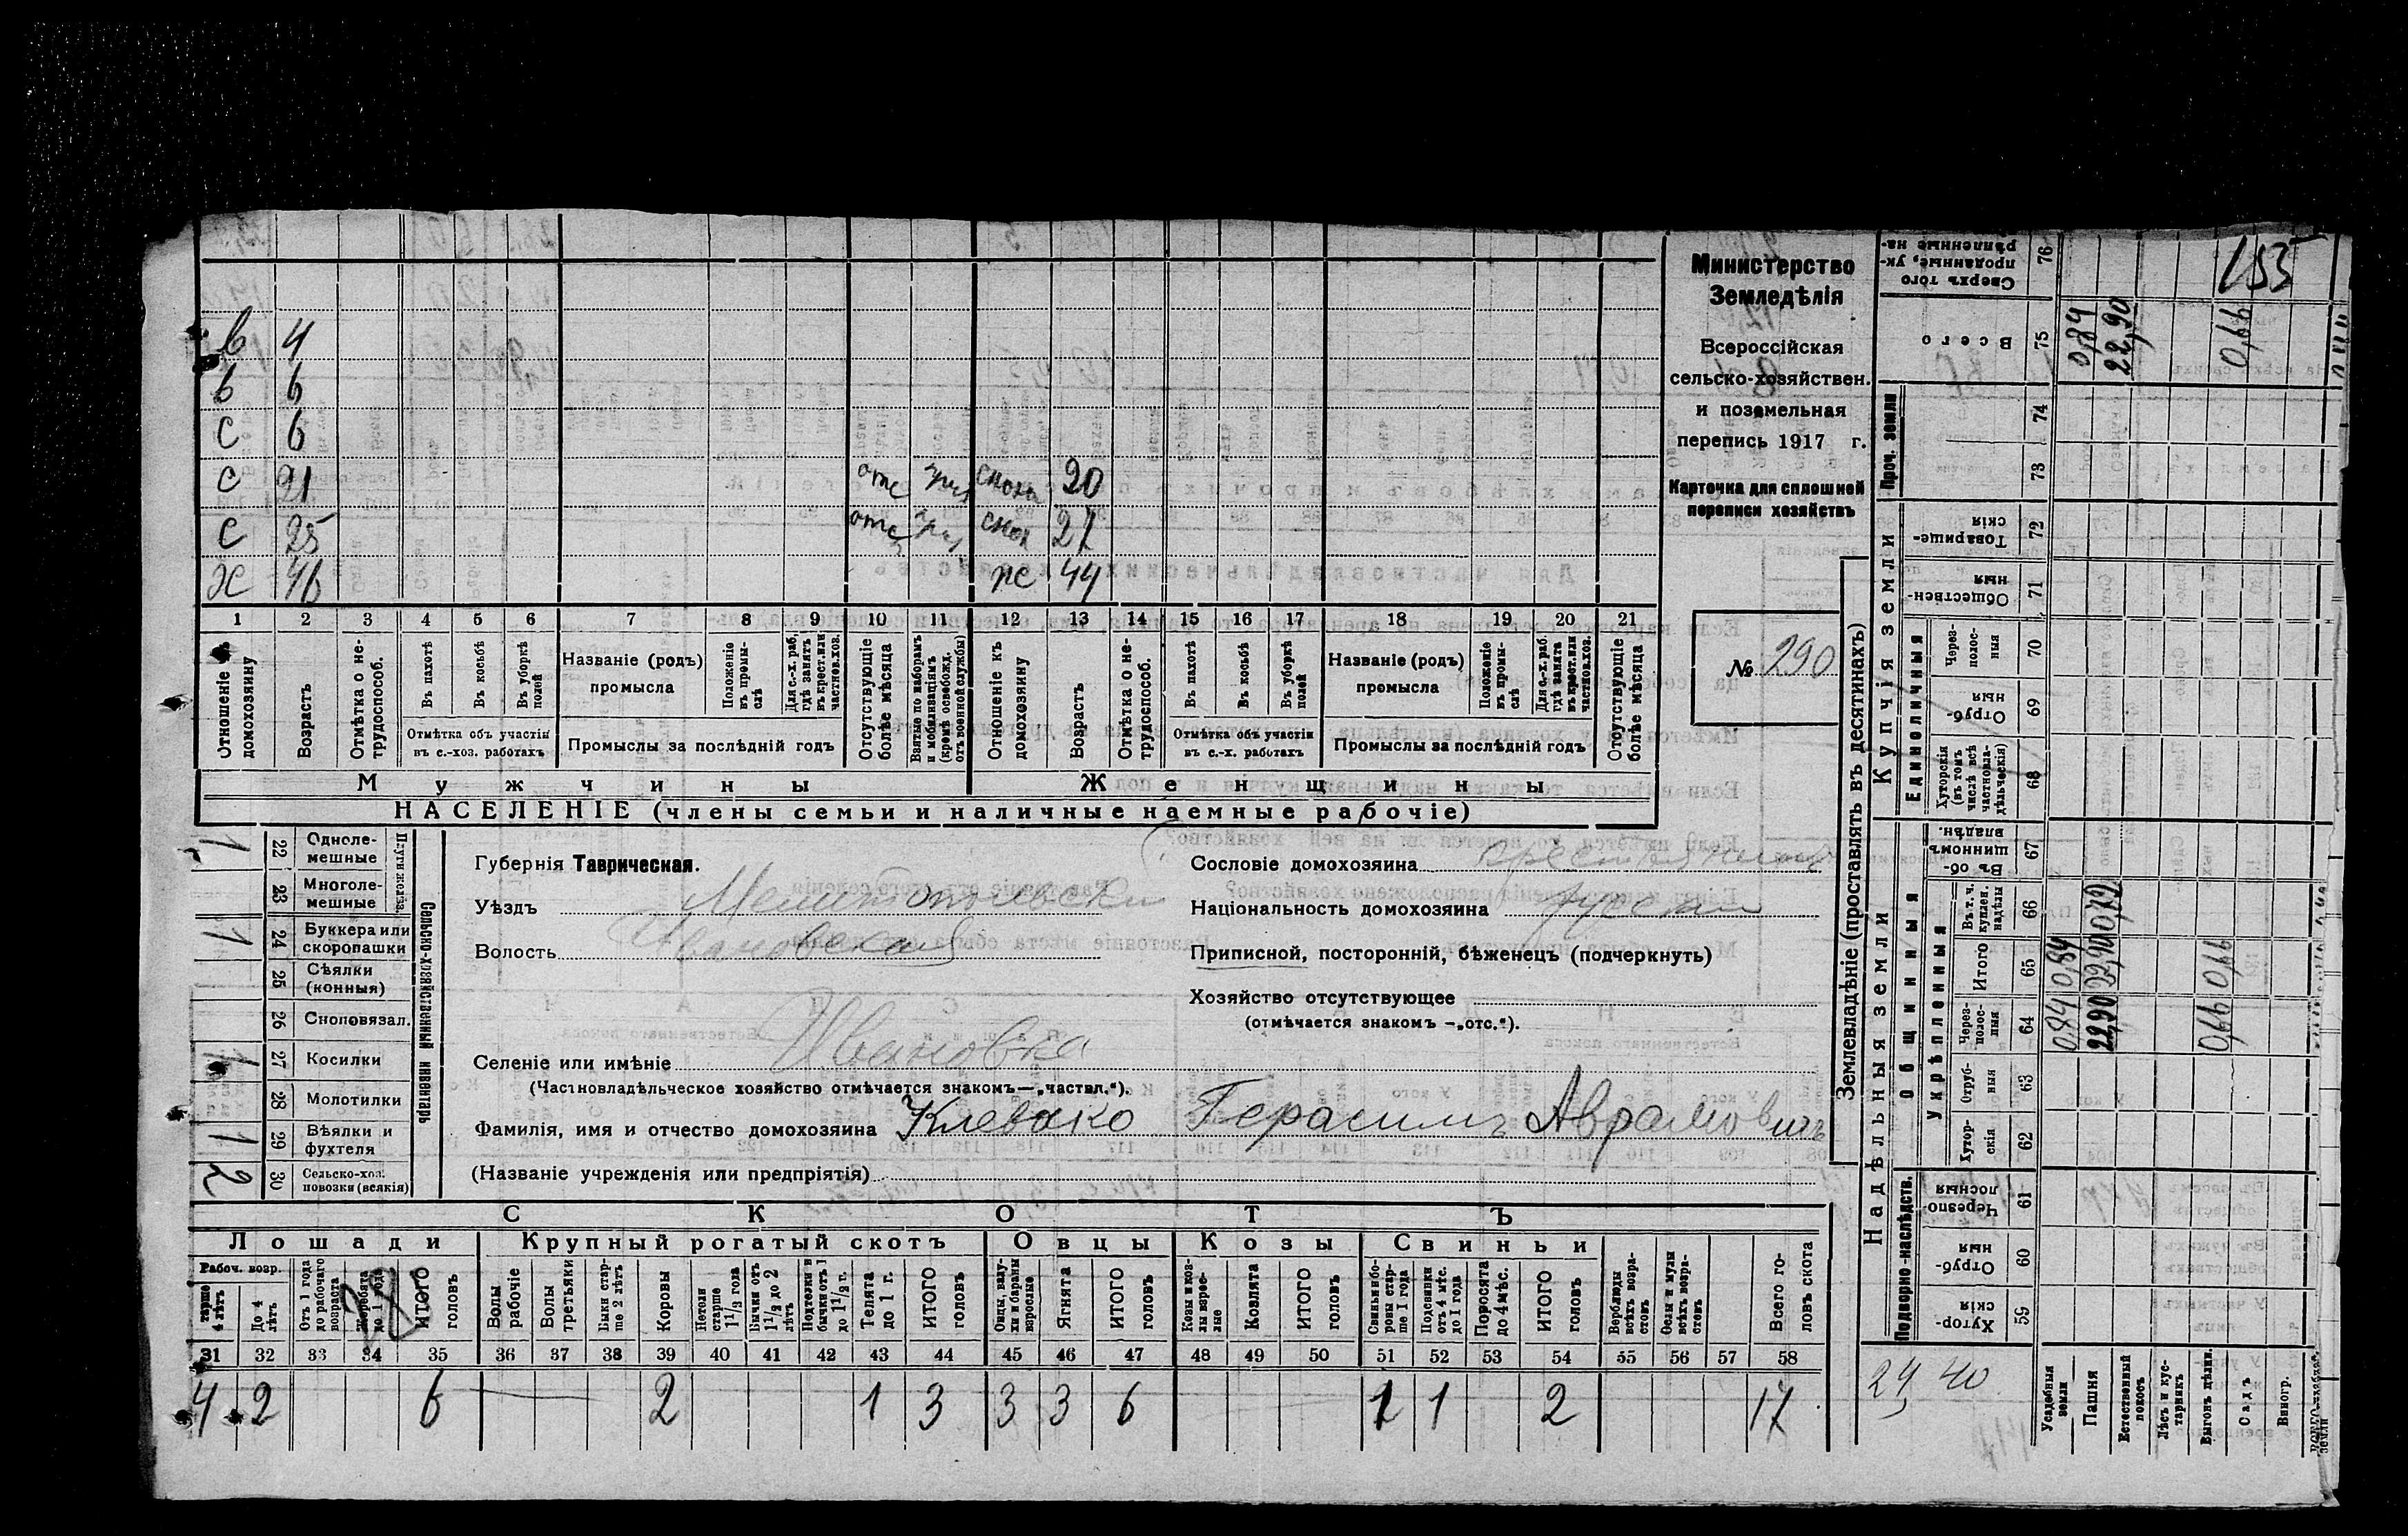 Министерство
Земледѣлія
Всероссійская
сельско-хозяйствен.
и поземельная
перепись 1917 г.
Карточка для сплошной
переписи хозяйствъ
№ 290
в 4
в 6
с 6
с 21 отс сноха 20
с 25 отс снох 27
х 46 же 44
1 2 3 4 5 6 7 8 9 10 11 12 13 14 15 16 17 18 19 20 21
Отношеніе къ домохозяину
Возрастъ
Отмѣтка о нетрудоспособ.
Въ пахотѣ
Въ косьбѣ
Въ уборкѣ полей
Отмѣтка объ участіи въ с.-хоз. работахъ
Названіе (родъ) промысла
Положеніе въ промыслѣ
Для с.-х. раб. гдѣ занятъ въ крест. или частнов. хоз.
Промыслы за послѣдній годъ
Отсутствующіе болѣе мѣсяца
Взятые по наборамъ и мобилизаціямъ (кромѣ освобожд. отъ военной службы)
Отношеніе къ домохозяину
Возрастъ
Отмѣтка о нетрудоспособ.
Въ пахотѣ
Въ косьбѣ
Въ уборкѣ полей
Отмѣтка объ участіи въ с.-х. работахъ
Названіе (родъ) промысла
Положеніе въ промыслѣ
Для с.-х. раб. гдѣ занята въ крест. или частнов. хоз.
Промыслы за послѣдній годъ
Отсутствующіе болѣе мѣсяца
Мужчины Женщины
НАСЕЛЕНІЕ (члены семьи и наличные наемные рабочіе)
Сельско-хозяйственный инвентарь
Плуги желѣз.
22 Однолемешные 1
23 Многолемешные
24 Буккера или скоропашки 1
25 Сѣялки (конныя)
26 Сноповязал.
27 Косилки 1
28 Молотилки
29 Вѣялки и фухтеля 1
30 Сельско-хоз. повозки (всякія) 2
Губернія Таврическая.
Уѣздъ Мелитопольскій
Волость Ивановская
Селеніе или имѣніе Ивановка
(Частновладѣльческое хозяйство отмѣчается знакомъ—„частвл.“).
Сословіе домохозяина крестьянинъ
Національность домохозяина русскій
Приписной, посторонній, бѣженецъ (подчеркнуть)
Хозяйство отсутствующее
(отмѣчается знакомъ —„отс.“).
Фамилія, имя и отчество домохозяина Клевако Герасимъ Аврамовичъ
(Названіе учрежденія или предпріятія)
СКОТЪ
Лошади Крупный рогатый скотъ Овцы Козы Свиньи
Рабоч. возр.
тарше 4 лѣтъ
До 4 лѣтъ
Отъ 1 года до рабочаго возраста
Жеребята до 1 года
ИТОГО головъ
Волы рабочіе
Волы третьяки
Быки старше 2 лѣтъ
Коровы
Нетели старше 1 1/2 года
Бычки отъ 1 1/2 до 2 лѣтъ
Подтелки и бычки отъ 1 до 1 1/2 г.
Телята до 1 г.
ИТОГО головъ
Овцы, валухи и бараны взрослые
Ягнята
ИТОГО головъ
Козы и козлы взрослые
Козлята
ИТОГО головъ
Свиньи и боровы старше 1 года
Подсвинки отъ 4 мѣс. до 1 года
Поросята до 4 мѣс.
ИТОГО головъ
Верблюды всѣхъ возрастовъ
Ослы и мулы всѣхъ возрастовъ
Всего головъ скота
31 32 33 34 35 36 37 38 39 40 41 42 43 44 45 46 47 48 49 50 51 52 53 54 55 56 57 58
4 2 6 2 1 3 3 3 6 1 1 2 17
Землевладѣніе (проставлять въ десятинахъ)
Сверхъ того проданные, ук- рѣпленные на- 76
155
Всего 75 0,84 22,90 0,66
Проч. земли 74 73
Купчія земли
Товарищескія 72
Общественныя 71
Единоличныя
Черезполосныя 70
Отрубныя 69
Хуторскія (въ томъ числѣ всѣ частновладѣльческія) 68
Надѣльныя земли
Общинныя
Въ общинномъ владѣн. 67
Укрѣпленныя
Въ т. ч. куплен. надѣлы 66
Итого 65 0,84 22,90 0,66
Черезполосныя 64 0,84 22,90 0,66
Отрубныя 63
Хуторскія 62
Подворно-наслѣдств.
Черезполосныя 61
Отрубныя 60
Хуторскія 59
24,40
Усадебныя земли
Пашня
Естественный покосъ
Лѣсъ и кустарникъ
Выгонъ дѣлим.
Садъ
Виногр.